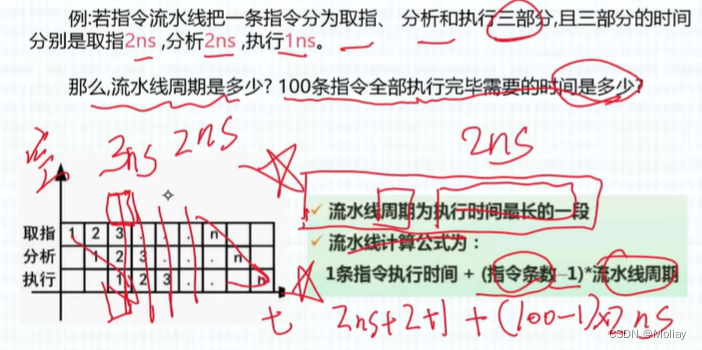 例:若指令流水线把一条指令分为取指、分析和执行三部分,且三部分的时间
分别是取指2ns,分析2ns,执行1ns。
那么,流水线周期是多少? 100条指令全部执行完毕需要的时间是多少?
空
3ns 2ns
2ns
取指 1 2 3 . . n
分析 1 2 3 . . n
执行 1 2 3 . . n
t
✓ 流水线周期为执行时间最长的一段
✓ 流水线计算公式为:
1条指令执行时间 + (指令条数-1)*流水线周期
2ns+2+1 + (100-1)×2ns
CSDN @Moliay